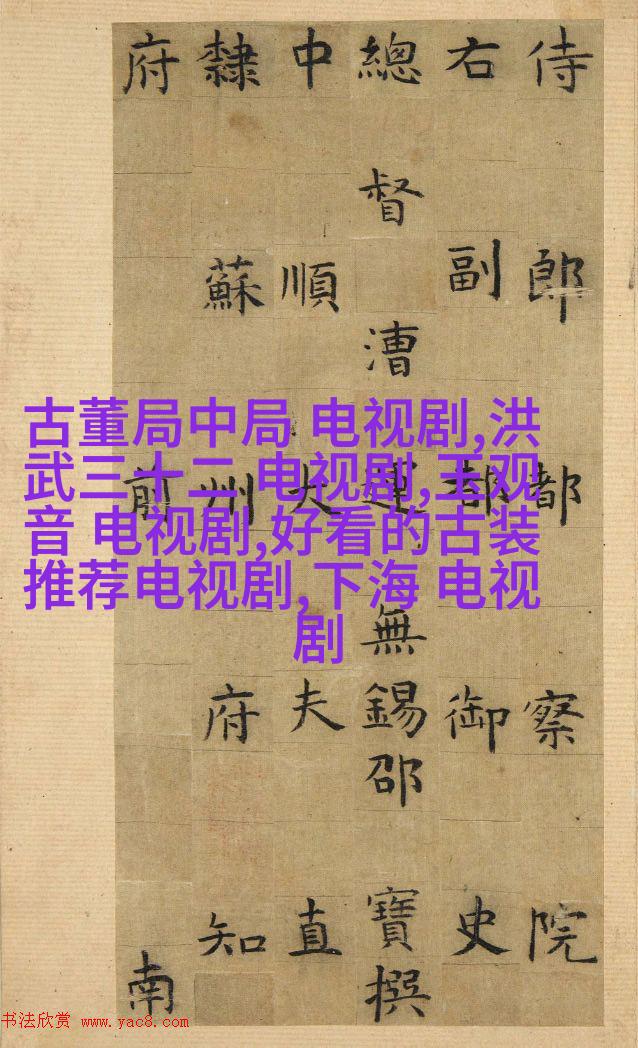 侍郎都察院
右副都御史
總督漕運無錫邵寶撰
中順大夫直
隸蘇州府知
府前南
古董局中局 电视剧,洪
武三十二 电视剧,玉观
音 电视剧,好看的古装
推荐电视剧,下海 电视
剧
书法欣赏 www.yac8.com